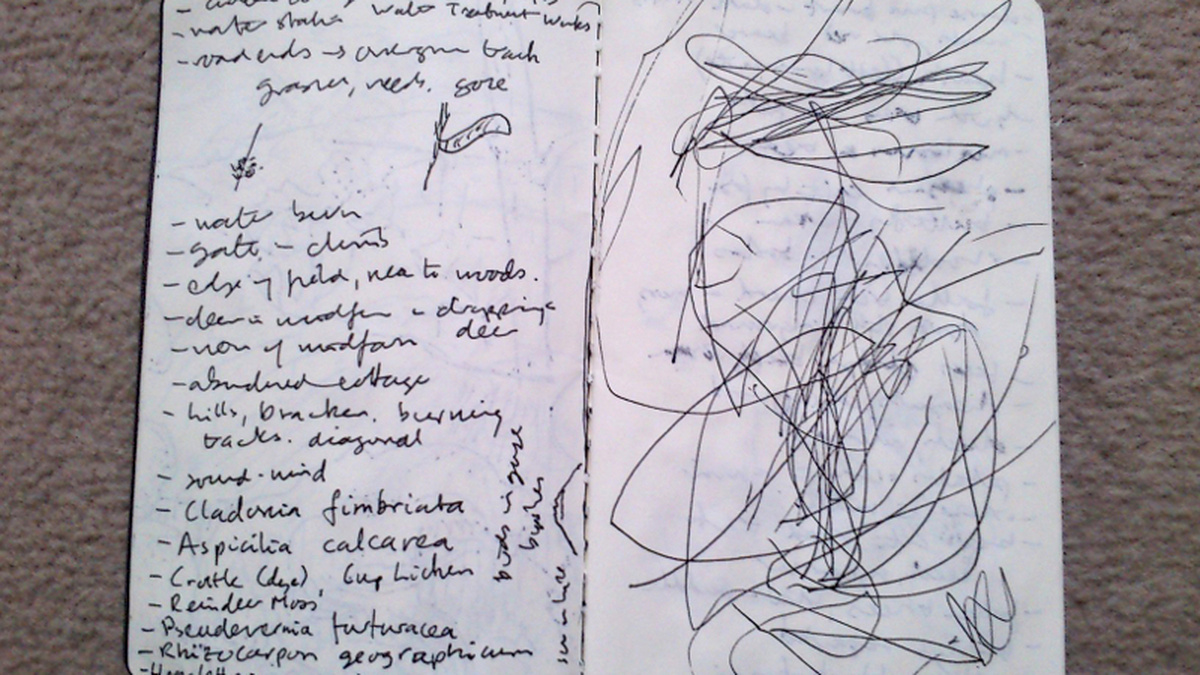 - water station Water Treatment Works
- road ends → overgrown track
grasses, reeds. gorse
- water burn
- gate - climb
- edge of field, near to woods.
- deer in windfarm - droppings
deer
- view of windfarm
- abandoned cottage
- hills, bracken. burning
tracks. diagonal
- sound - wind
- Cladonia fimbriata
- Aspicilia calcarea
- Crottle (dye) Cup Lichen
- Reindeer Moss
- Pseudevernia furfuracea
- Rhizocarpon geographicum
birds in gorse
bushes